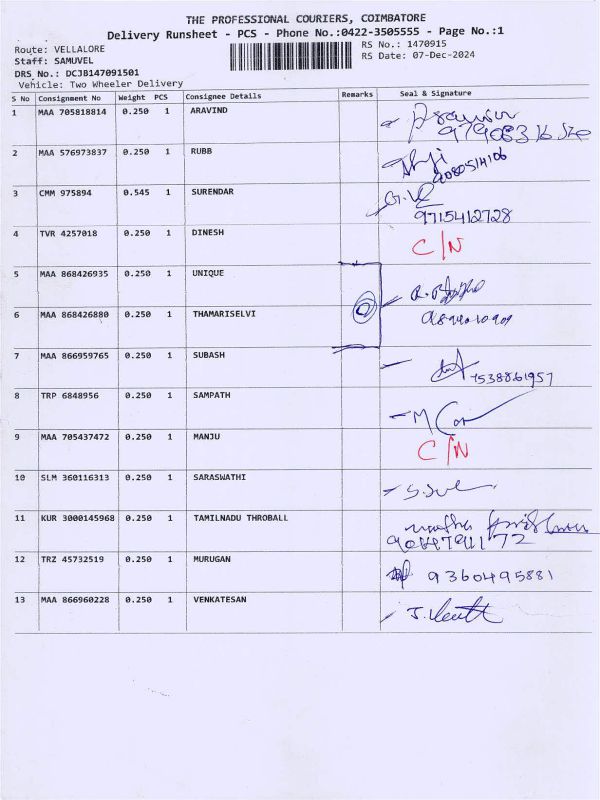 THE PROFESSIONAL COURIERS, COIMBATORE
Delivery Runsheet - PCS - Phone No.:0422-3505555 - Page No.:1
Route: VELLALORE
RS No.: 1470915
Staff: SAMUVEL
RS Date: 07-Dec-2024
DRS No.: DCJ8147091501
Vehicle: Two Wheeler Delivery
S No Consignment No Weight PCS Consignee Details Remarks Seal & Signature
1 MAA 705818814 0.250 1 ARAVIND
2 MAA 576973837 0.250 1 RUBB
9080514106
3 CMM 975894 0.545 1 SURENDAR
9715412728
4 TVR 4257018 0.250 1 DINESH C/N
5 MAA 868426935 0.250 1 UNIQUE
6 MAA 868426880 0.250 1 THAMARISELVI
7 MAA 866959765 0.250 1 SUBASH
7538861957
8 TRP 6848956 0.250 1 SAMPATH
9 MAA 705437472 0.250 1 MANJU C/N
10 SLM 360116313 0.250 1 SARASWATHI
11 KUR 3000145968 0.250 1 TAMILNADU THROBALL
12 TRZ 45732519 0.250 1 MURUGAN 9360495881
13 MAA 866960228 0.250 1 VENKATESAN